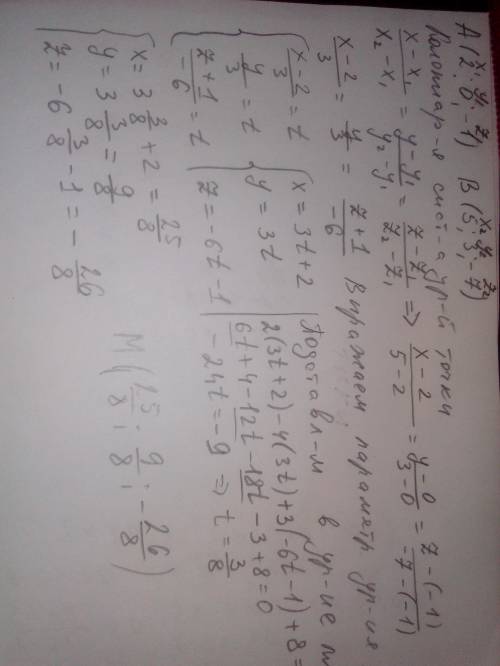 A(2; 0; -1) B(5; 3; -7)
x₁ y₁ z₁ x₂ y₂ z₂
сист-а ур-й точки
(x - x₁)/(x₂ - x₁) = (y - y₁)/(y₂ - y₁) = (z - z₁)/(z₂ - z₁) => (x - 2)/(5 - 2) = (y - 0)/(3 - 0) = (z - (-1))/(-7 - (-1))
(x - 2)/3 = y/3 = (z + 1)/(-6) Выражаем параметр ур-ия
{ (x - 2)/3 = t { x = 3t + 2
y/3 = t y = 3t
(z + 1)/(-6) = t z = -6t - 1
Подставл-м в ур-ие
2(3t + 2) - 4(3t) + 3(-6t - 1) + 8 =
6t + 4 - 12t - 18t - 3 + 8 = 0
- 24t = -9 => t = 3/8
{ x = 3 3/8 + 2 = 25/8
y = 3 3/8 = 9/8
z = -6 3/8 - 1 = - 26/8
M(25/8; 9/8; -26/8)